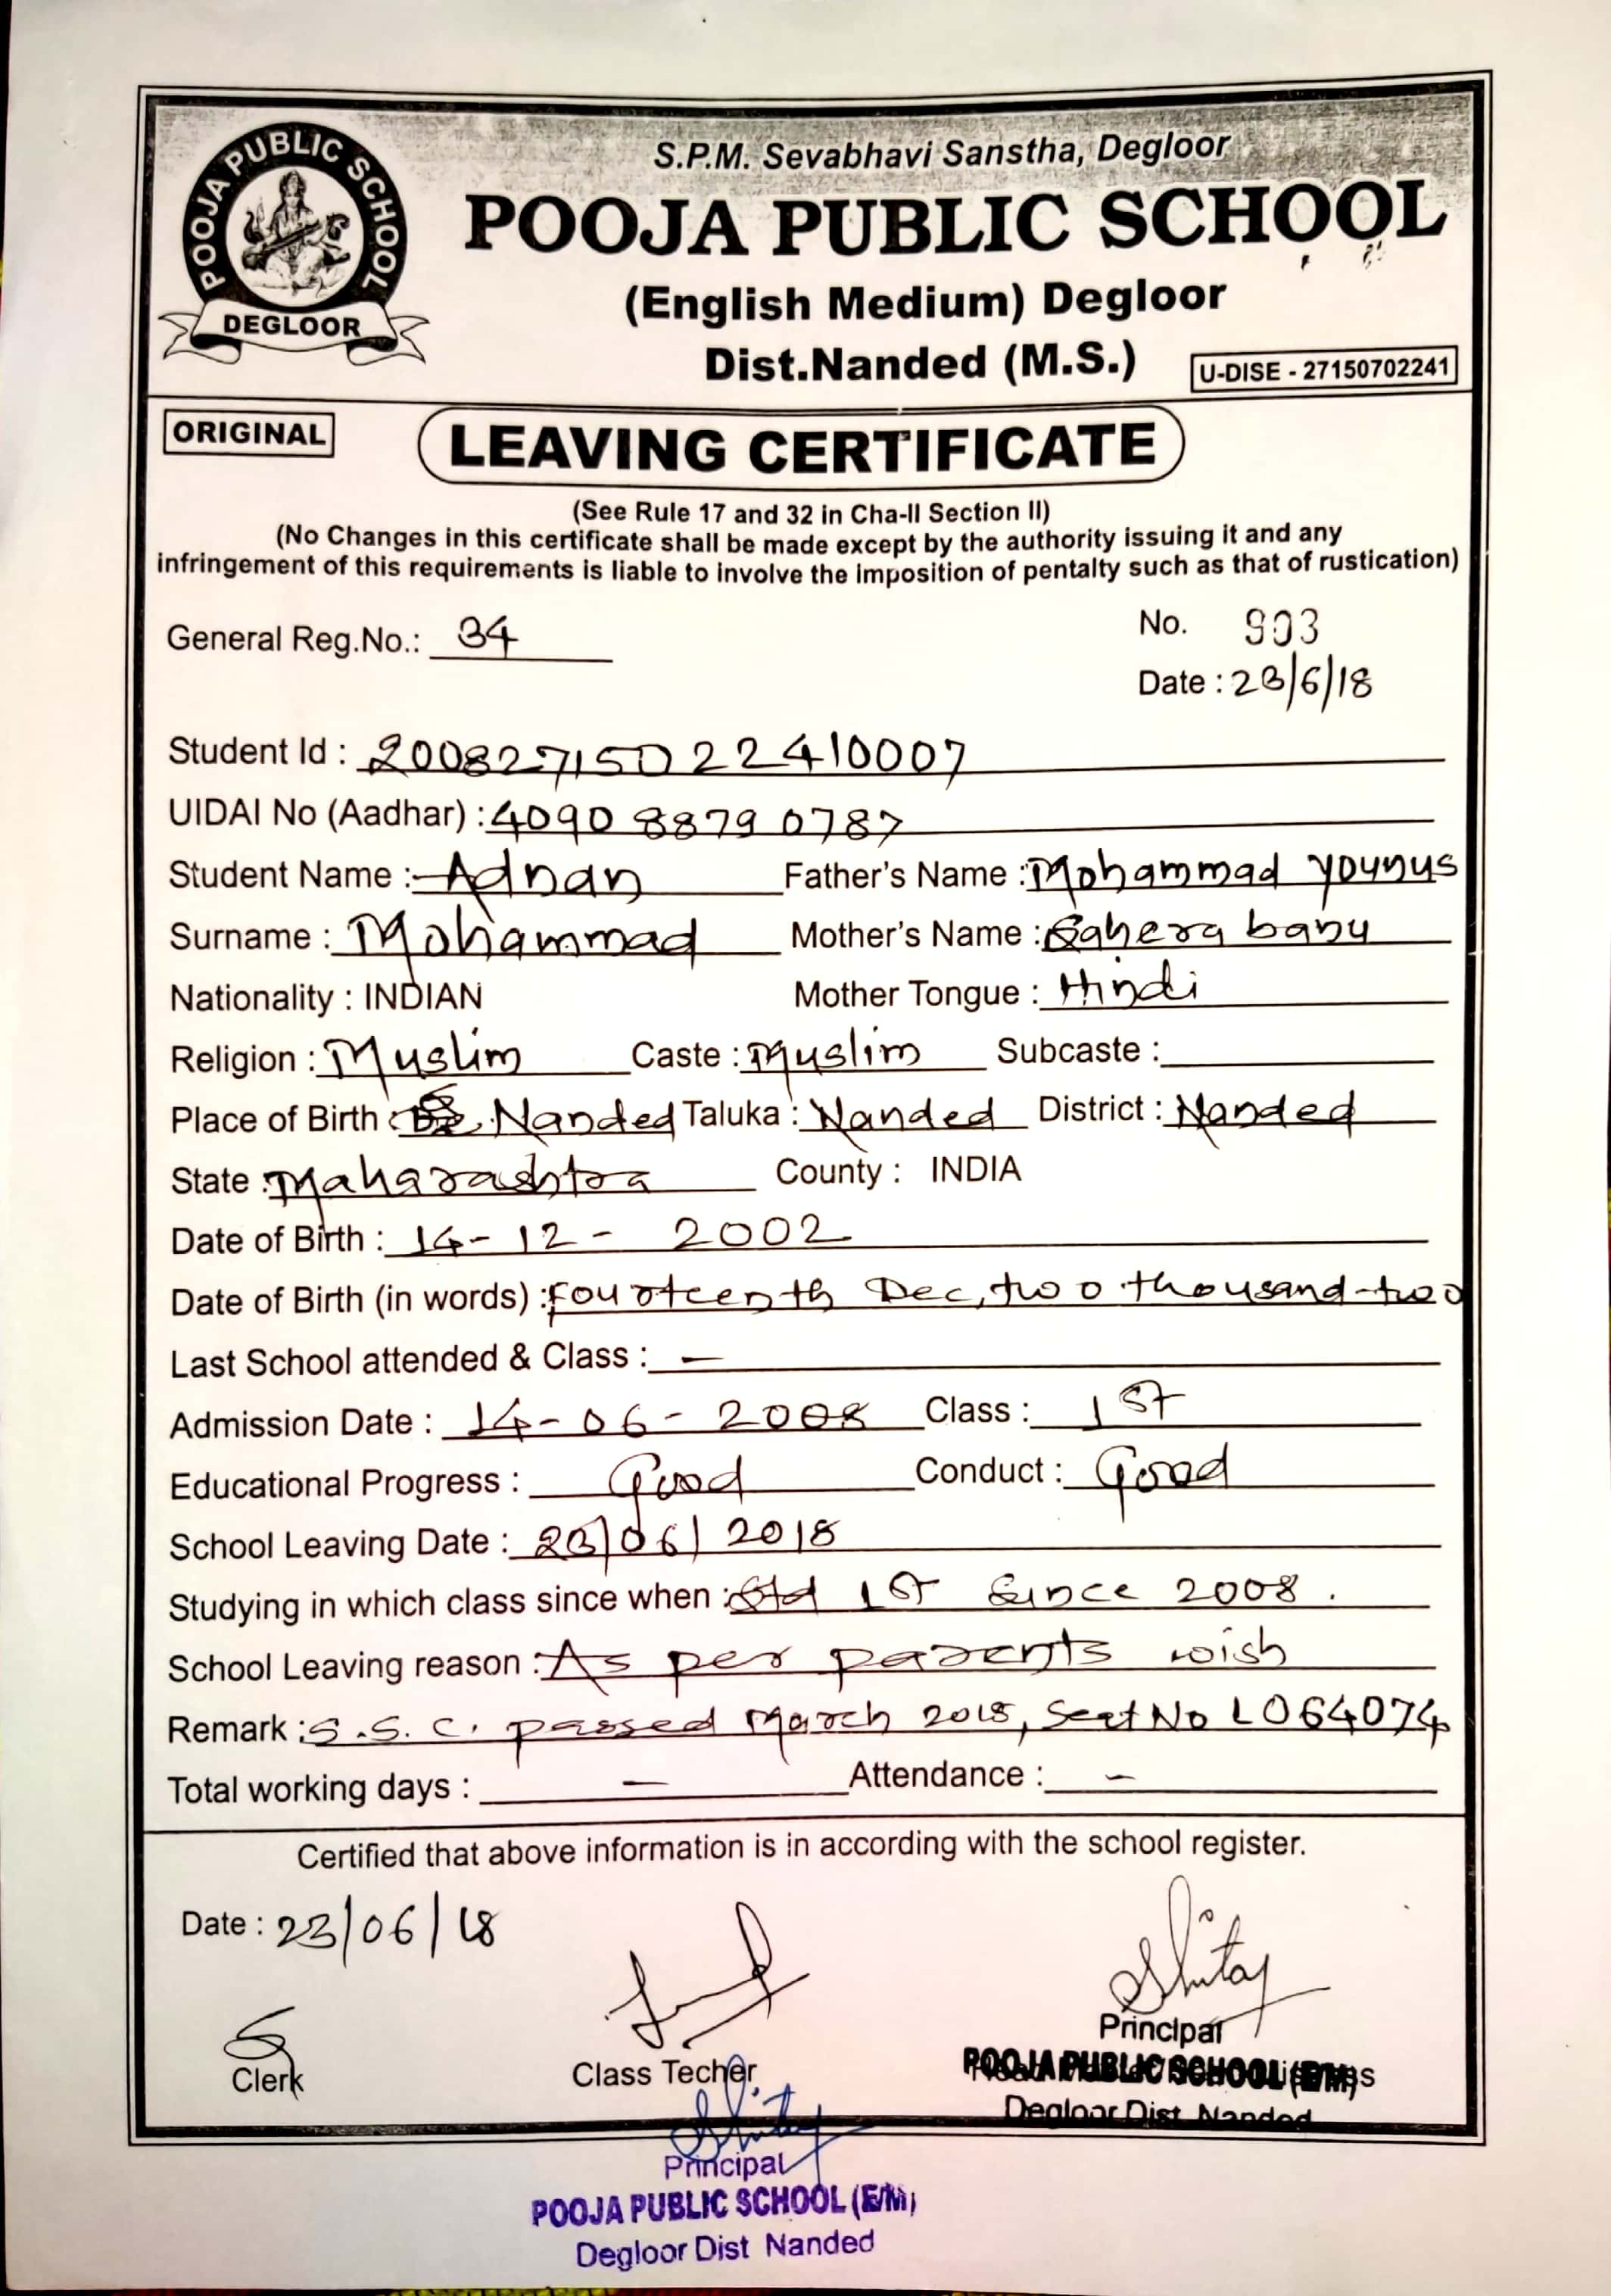 POOJA PUBLIC SCHOOL
DEGLOOR
S.P.M. Sevabhavi Sanstha, Degloor
POOJA PUBLIC SCHOOL
(English Medium) Degloor
Dist.Nanded (M.S.)
U-DISE - 27150702241
ORIGINAL
LEAVING CERTIFICATE
(See Rule 17 and 32 in Cha-II Section II)
(No Changes in this certificate shall be made except by the authority issuing it and any
infringement of this requirements is liable to involve the imposition of pentalty such as that of rustication)
General Reg.No.: 34 No. 903
Date : 23/6/18
Student Id : 20082715022410007
UIDAI No (Aadhar) : 4090 8879 0787
Student Name : Adnan Father's Name : Mohammad younus
Surname : Mohammad Mother's Name : Sahera banu
Nationality : INDIAN Mother Tongue : Hindi
Religion : Muslim Caste : Muslim Subcaste :
Place of Birth : Nanded Taluka : Nanded District : Nanded
State : Maharashtra County : INDIA
Date of Birth : 14-12-2002
Date of Birth (in words) : Fourteenth Dec, two thousand two
Last School attended & Class : —
Admission Date : 14-06-2008 Class : 1st
Educational Progress : Good Conduct : Good
School Leaving Date : 23/06/2018
Studying in which class since when : Std 1st Since 2008.
School Leaving reason : As per parents wish
Remark : S.S.C. passed March 2018, Seat No L064074
Total working days : — Attendance : –
Certified that above information is in according with the school register.
Date : 23/06/18
Clerk
Class Techer
Principal
POOJA PUBLIC SCHOOL (E/M)
Degloor Dist Nanded
Principal
POOJA PUBLIC SCHOOL (E/M)
Degloor Dist Nanded